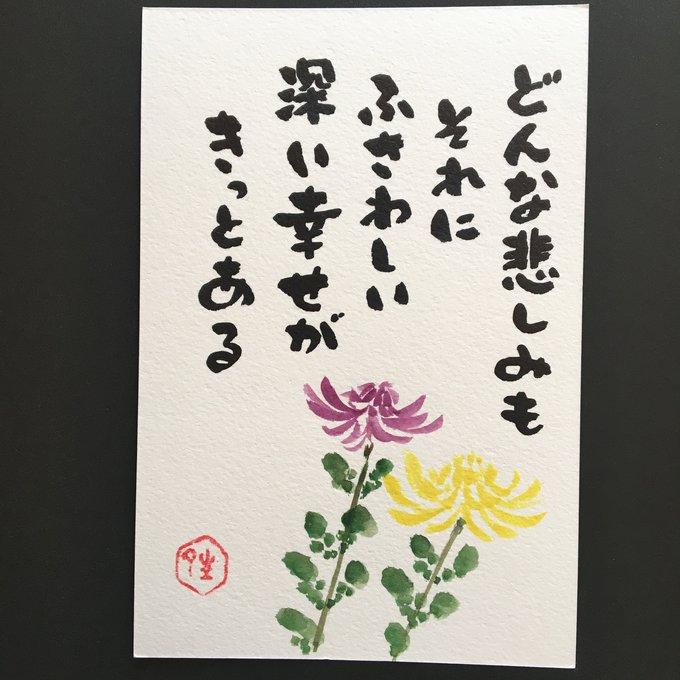 どんな悲しみも
それに
ふさわしい
深い幸せが
きっとある